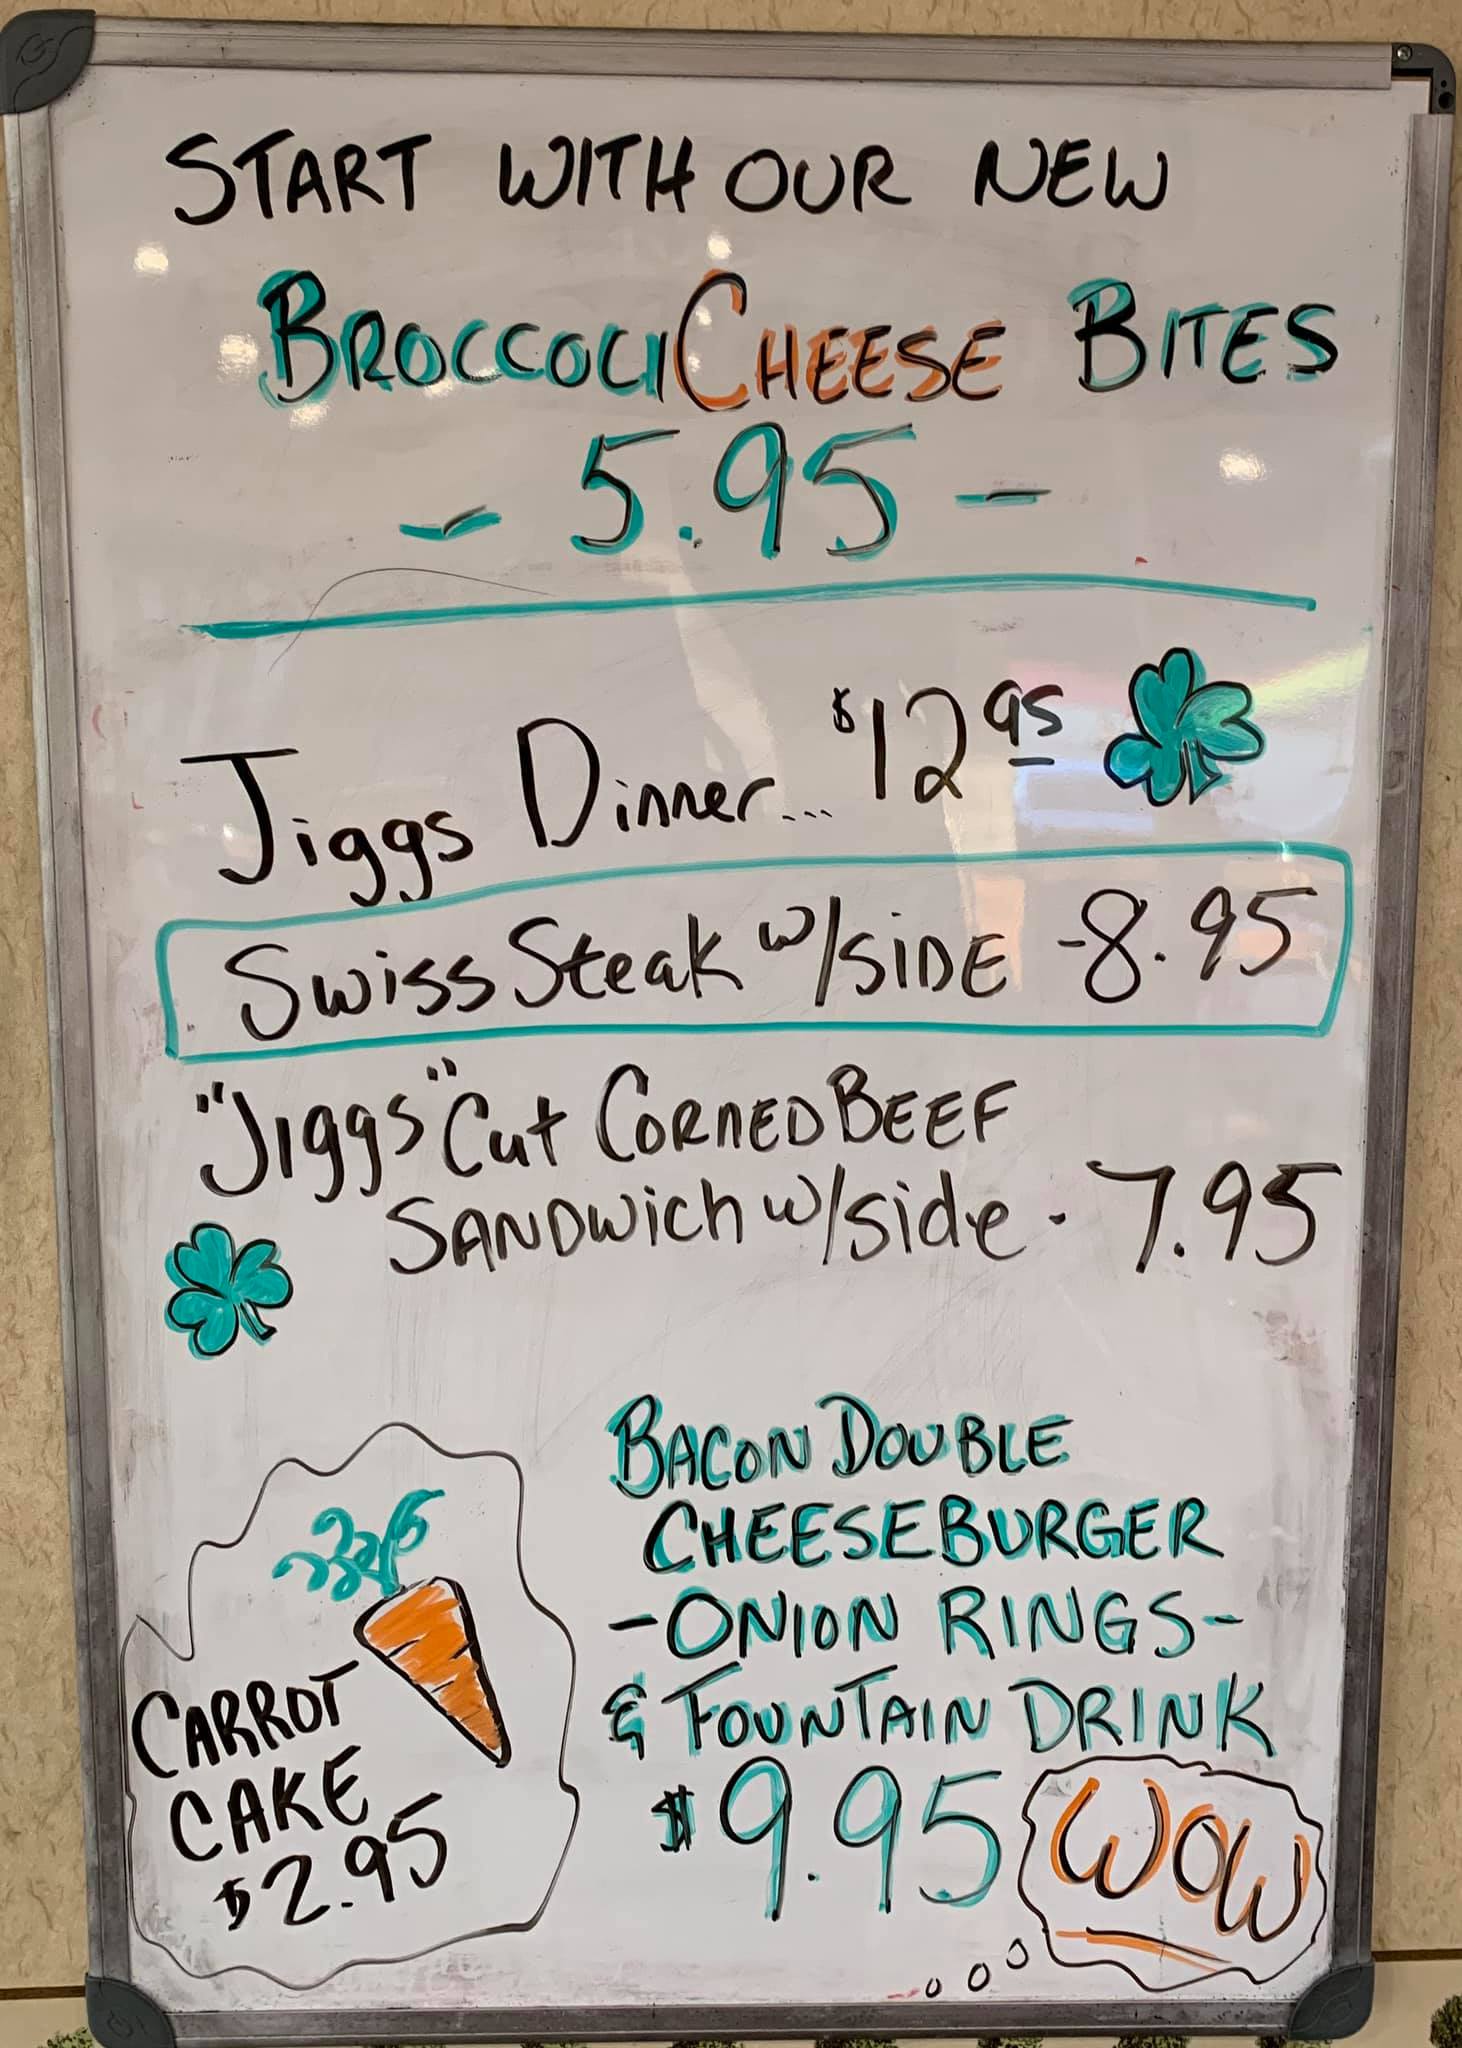 START WITH OUR NEW
BROCCOLI CHEESE BITES
- 5.95 -
Jiggs Dinner... $12 95
Swiss Steak w/SIDE - 8.95
"Jiggs" Cut CORNED BEEF
SANDWich w/side - 7.95
BACON DOUBLE
CHEESEBURGER
- ONION RINGS -
& FOUNTAIN DRINK
$9.95
WOW
CARROT
CAKE
$2.95